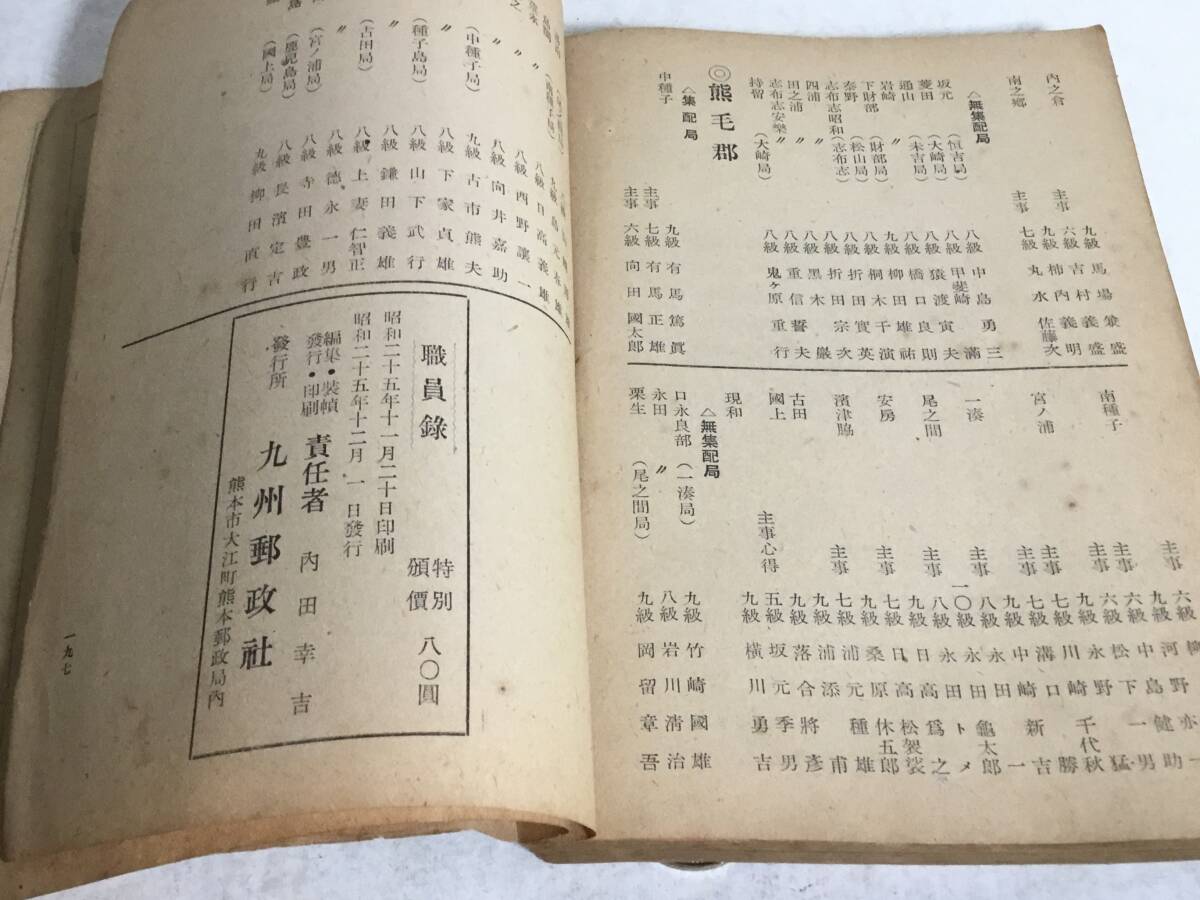 内之倉
九級 馬場兼盛
主事 六級 吉村義明
南之郷
九級 柿内義次
主事 七級 丸水佐藤次
△無集配局
坂元 (恒吉局) 八級 中島勇三
菱田 (大崎局) 八級 甲斐崎滿
通山 (末吉局) 八級 猿渡寅夫
岩崎 〃 八級 橋口良則
下財部 (財部局) 九級 柳田雄祐
泰野 (松山局) 八級 桐木千濱
志布志昭和 (志布志) 八級 折田實英
四浦 〃 八級 折田宗次
田之浦 〃 八級 黑木嚴
志布志安樂 〃 八級 重信誓夫
持留 (大崎局) 八級 鬼ヶ原重行
◎熊毛郡
△集配局
中種子
九級 有馬篤眞
主事 七級 有馬正雄
主事 六級 向田國太郎
南種子
六級
主事 九級 河野健助
六級 中島一男
宮ノ浦
主事 六級 松下猛
九級 永野千代秋
主事 九級 川崎勝
一湊
主事 七級 溝口新吉
九級 中崎一
尾之間
主事 八級 永田龜太郎
一〇級 永田トメ
安房
八級 永田爲之
主事 九級 日高松袈裟
濱津脇
九級 桑原休五郎
主事 七級 浦元種雄
古田
九級 浦添甫
國上
九級 落合將彥
現和
主事心得 五級 坂元季男
九級 橫川勇吉
△無集配局
口永良部 (一湊局) 九級 竹崎國雄
永田 〃 八級 岩川淸治
栗生 (尾之間局) 九級 岡留章吾
八級 日高義雄
八級 西野讓一
〃 八級 向井嘉助
(中種子局) 九級 古市熊夫
〃 八級 下家貞雄
(種子島局) 八級 山下武行
〃 八級 鎌田義雄
(古田局) 八級 上妻仁智正
〃 八級 德永一男
(宮ノ浦局) 八級 寺田豊政
(鹿兒島局) 八級 長濱定吉
(國上局) 九級 柳田直行
職員錄
特別頒價 八〇圓
昭和二十五年十一月二十日印刷
昭和二十五年十二月一日發行
編集・裝幀
發行・印刷
責任者 內田幸吉
發行所 九州郵政社
熊本市大江町熊本郵政局內
一九七